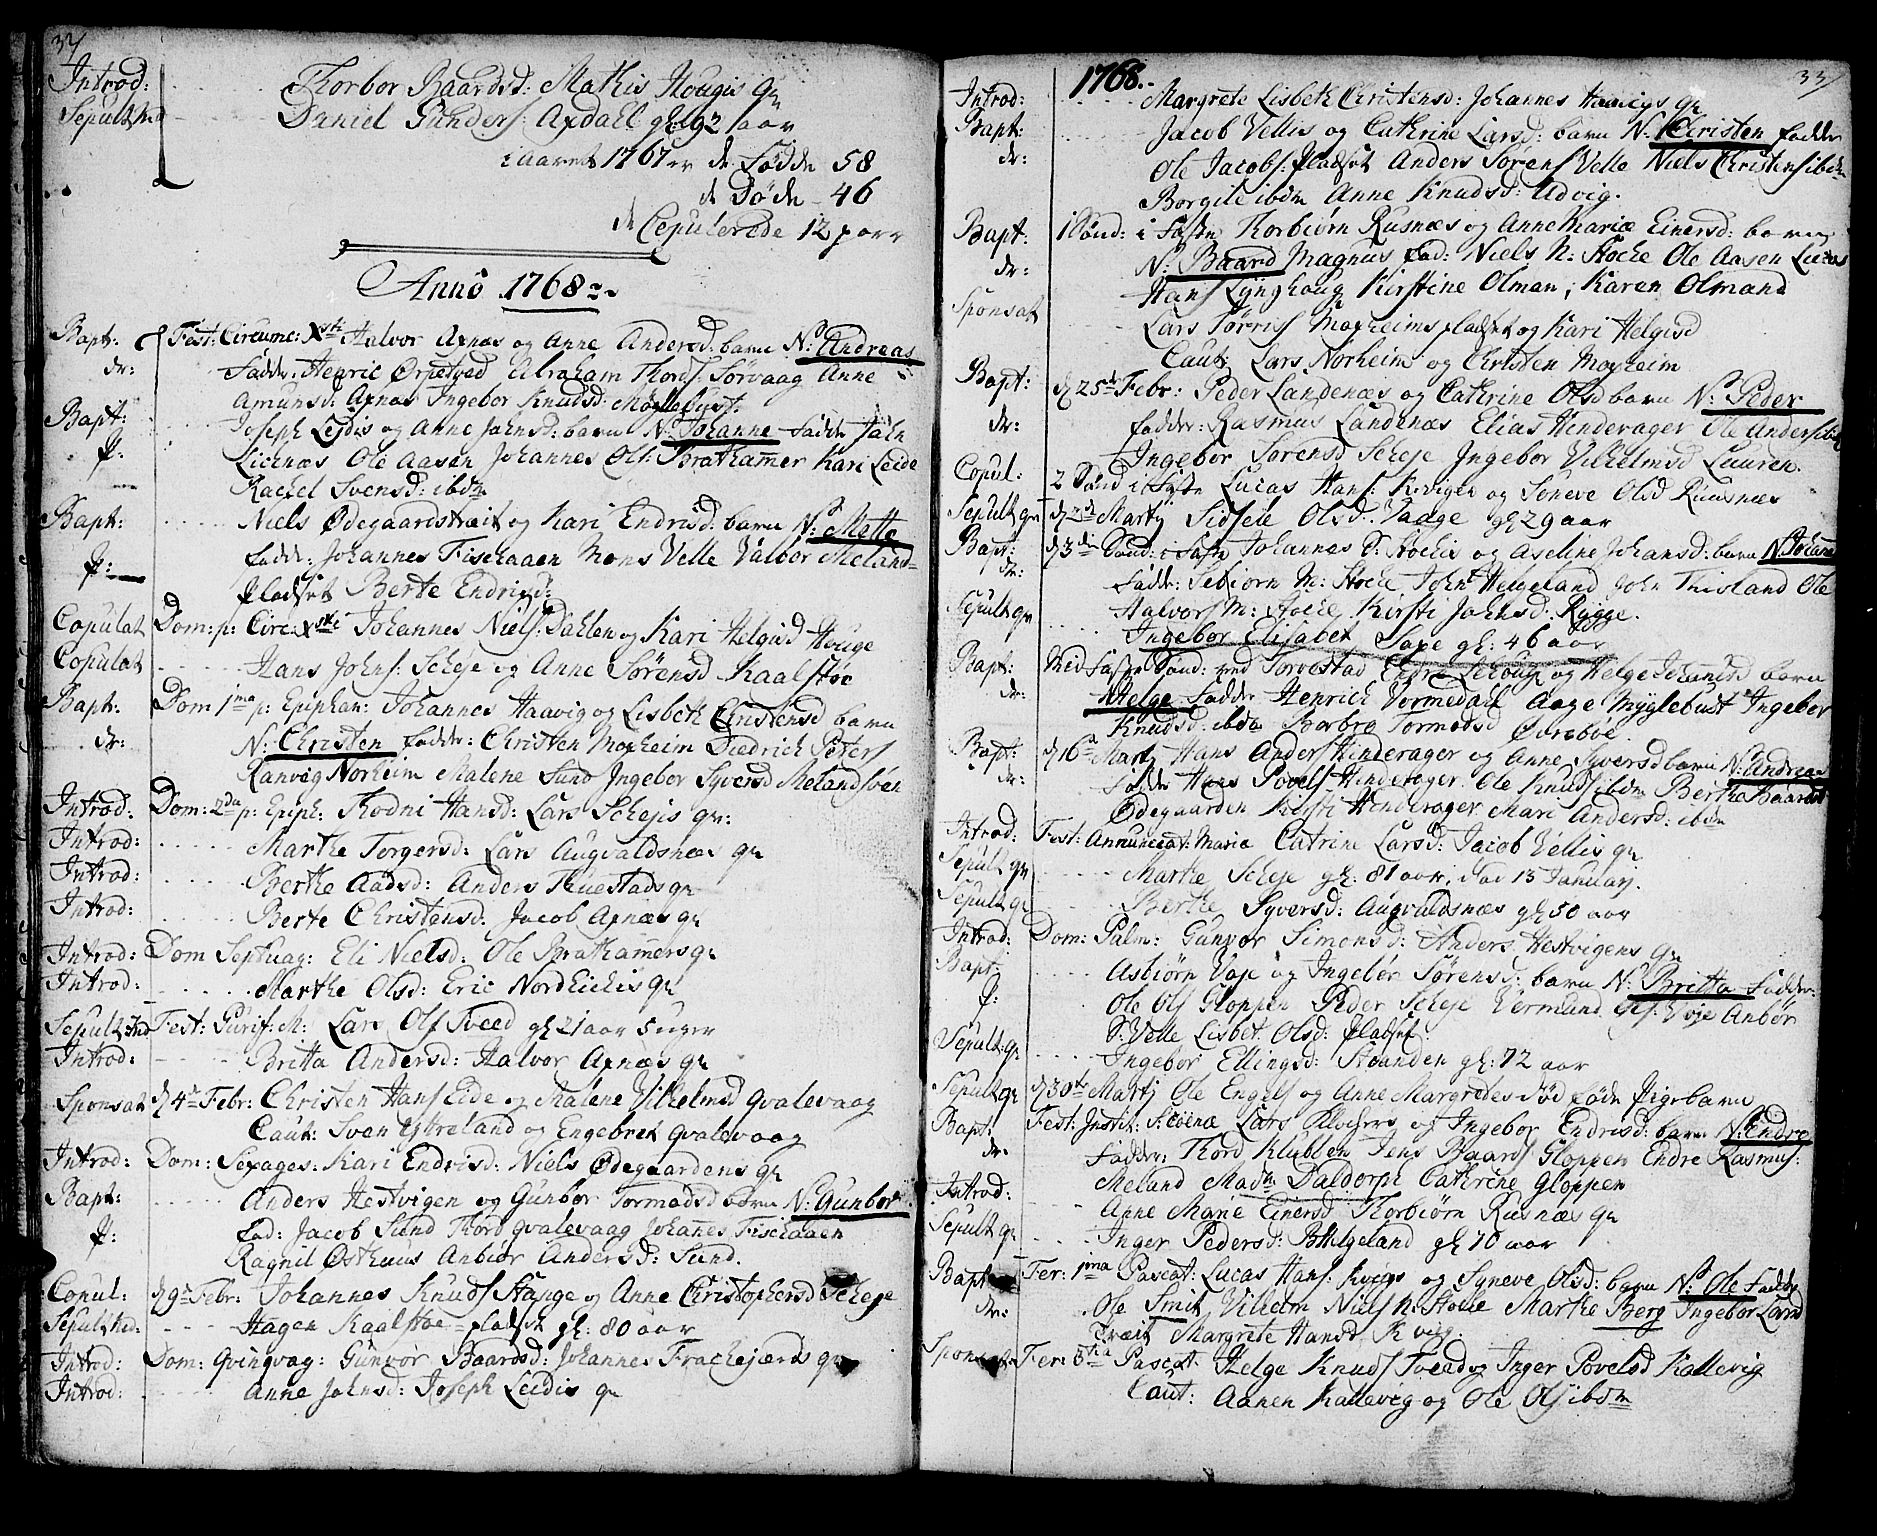 32/
Introd: Thorbor Baardsd: Mathis Hougis qv
Sepult: Daniel Gunders: Axdael gl: 92 aar
i aaret 1767 er de Födde 58
de Döde - 46
de Copulerede 12 parr
Anno 1768
Bapt: Fest: Circumc: Xsti Halvor Axnæs og Anne Andersd barn N: Andreas
dr: Fadder: Henric Ørpetved Abraham Thords: Sörvaag Anne
Amunsd: Axnæs Ingebor Knudsd: Møglebust.
Bapt: Joseph Lejdis og Anne Johnsd: barn N: Johanne Fadde John
f: Licknæs Ole Aasen Johannes Ols: Bratham̄er Kari Leide
Rachel Svensd: ibdm
Bapt: Niels Ødegaardstræit og Kari Endrisd: barn N: Mette
f: fadd: Johannes Fischaaen Mons Velle Valbor Meland-
pladset Berte Endrisd:
Copulat Dom: p: Circ: Xsti Johannes Niels: Dahlen og Kari Helgisd Houge
Copulat Hans Johns: Scheje og Anne Sørensd Kaalstøe
Bapt: Dom 1ma p: Epiphan: Johannes Haavig og Lisbeth Christensd barn
dr: N: Christen fadde: Christen Moxheim Diedrich Peters
Ranveg Norheim Malene Sund Ingebor Syversd Melandsøen
Introd: Dom: 2da p: Epiph: Thodni Hansd: Lars Schejes qv:
Introd: Marthe Torgersd: Lars Augvaldsnæs qv
Introd: Berthe Aadsd: Anders Thuestads qv
Introd: Berte Christensd: Jacob Axnæs qv
Introd: Dom Septuag: Eli Nielsd: Ole Bratham̄ers qv
Introd: Marthe Olsd: Eric Nordhichis qv
Sepult: Fest: Purif: M: Lars Ols Tveed gl: 21 aar 5 uger
Introd: Britta Andersd: Halvor Axnæs qv
Sponsat d 4de Febr: Christen Hans Eide og Malene Vilhelmsd Qvalevaag
Caut: Sven Ystreland og Engebret Qvalevaag
Introd: Dom: Sexages: Kari Endrisd: Niels Ødegaardens qv
Bapt: Anders Hestvigen og Gunbor Tormodsd barn N: Gunbor
f: fad: Jacob Sund Thord Qvalevaag Johan̄es Fischaaen
Ragnil Østhuus Anbior Andersd: Sund.
Copul: d 9de Febr: Johannes Knuds Hauge og Anne Christophersd Scheje
Sepult: Hagen Kaalstøe-pladsen gl: 80 aar
Introd: Dom: Qvinqvag: Gunvor Baardsd: Johannes Frachejærds qv
Introd: Anne Johnsd: Joseph Leidis qv
33/
1768.-
Introd: Margrete Lisbeth Christensd: Johannes Haavigs qv
Bapt: Jacob Vellis og Cathrine Larsd: barn N: Christen fadder
dr: Ole Jacobs: pladset Anders Sørens Velle Niels Christens ibdm
Borgile ibdm Anne Knudsd: Udvig.
Bapt: 1 Sönd: i Faste Thorbiørn Rusnæs og Anne Mariæ Einersd: barn
dr: N: Baard Magnus fad: Niels N: Stoche Ole Aasen Lucas
Hans Lynghoug Kirstine Olman, Karen Olmand
Sponsat Lars Tørris Moxheims pladset og Kari Helgisd
Caut: Lars Norheim og Christen Moxheim
Bapt: d 25de Febr: Peder Landenæs og Cathrine Olsd barn N: Peder
dr: fadder: Rasmus Landenæs Elias Hinderager Ole Anders ibdm
Ingebor Sørensd Scheje Ingebor Vilhelmsd Lauren.
Copul: 2 Sönd i Faste Lucas Hans: Kvigen og Söneve Olsd Ruusnæs
Sepult qv Martij Sidsele Olsd: Vaage gl: 29 aar
Bapt: d 3di Sönd: i Faste Johannes S: Stochis og Aseline Johansd: barn N: Johan̄a
dr: Fadde: Sebiørn M: Stoche John Helgeland John Thisland Ole
Halvors M: Stoche Kirsti Johnsd: Rygge.
Sepult qv Ingebor Elisabet Saxe gl: 46 aar
Bapt: Mid Faste Sönd: ved Torvestad Endre Lehoug og Helge Johannisd barn
dr: Helge Fadde Henrich Vormedahl Aage Myglebust Ingebor
Knudsd ibdm Borbro Tormodsd Øvrebøe.
Bapt: d 16de Martij Hans Anders Hinderager og Anne Syversd barn N: Andreas
dr: Fadde Hans Povels Hinderager Ole Knuds ibdm Berthe Baardsd
Ødegaarden Kirsti Hinderager Mari Andersd: ibdm
Introd: Fest: Annunciat: Mariæ Catrine Larsd: Jacob Vellis qv
Sepult qv Marthe Scheje gl: 81 aar,
Sepult qv Berthe Syversd: Augvaldsnæs gl: 50 aar
Introd: Dom: Palm: Gunvor Simonsd: Anders Hestvigens qv
Bapt: Asbiørn Vaje og Ingebor Sørensd: barn N: Britta Fadder:
f: Ole Ols Gloppen Peder Scheje Vermund Vaje Anbör
S: Velle Lisbet Olsd: pladset.
Sepult qv Ingebor Ellingsd: Stranden gl: 72 aar
Sepult qv d 30te Martij Ole Engels og Anne Margretes död föde pigebarn
Bapt: Fest: Instit: S: Coenæ Lars Ollvehers og Ingebor Endrisd: barn N: Endre
dr: Fadder: Thord Klubben Jens Baars Gloppen Endre Rasmus:
Meland Madm Daldorph Cathrine Gloppen
Introd: Anne Marie Einersd Thorbiørn Rusnæs qv
Sepult qv Inger Pedersd: Helgeland gl: 70 aar
Bapt Fer: 1ma Pascat: Lucas Hans: Kvigs og Syneve Olsd: barn N: Ole Fadde
dr: Ole Smit Vilhelm Niels N: Stolle Marthe Berg Ingebor Land
Træit Margrete Hansd Kvig.
Sponsat Fer: 3tia Pascat. Helge Knuds Tvead og Inger Povelsd Kallevig
Caut: Aanen Kallevig og Ole Ols ibdm